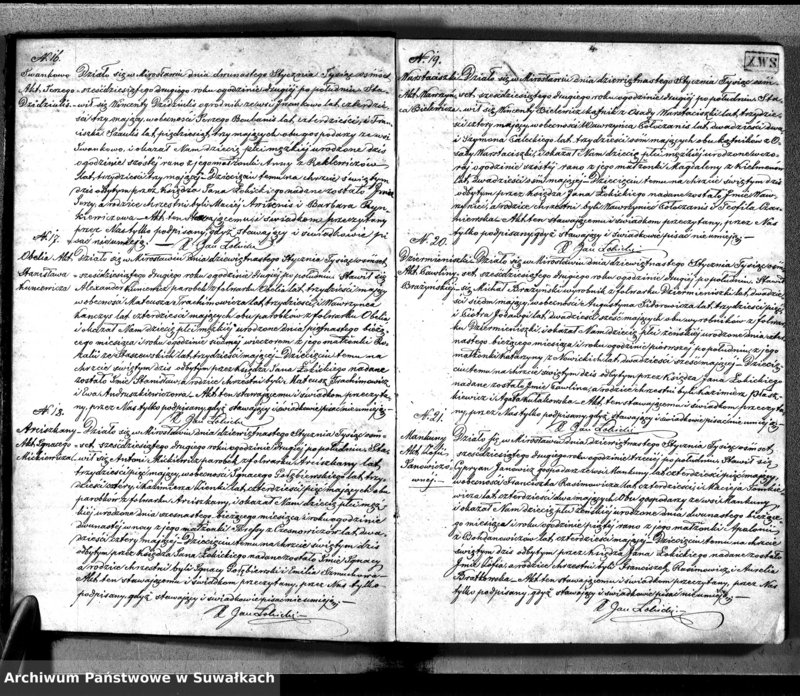 N. 16.
Iwankowo Działo się w Mirosławiu dnia dwunastego Stycznia Tysiąc ośmset
Akt Jerzego sześćdziesiątego drugiego roku o godzinie drugiej po południu. Sta-
wił się Wincenty ogrodnik ze wsi Iwankowa lat czterdzie-
ści trzy mający, w obecności Jerzego lat czterdzieści, i Fran-
ciszki lat pięćdziesiąt trzy mających obu gospodarzy ze wsi
Iwankowa, i okazał Nam dziecię płci męzkiej urodzone dziś
o godzinie szóstej rano z jego małżonki Anny z
lat trzydzieści trzy mającej. Dziecięciu temu na chrzcie świętym
dziś odbytym przez Księdza Jana Łobickiego nadane zostało Imie
Jerzy, a rodzice chrzestni byli Maciej i Barbara
Akt ten stawającemu i świadkom przeczytany
przez Nas tylko podpisany, gdyż stawający i świadkowie pi-
sać nieumieją.
X Jan Łobicki
N. 17.
Obelia Akt Działo się w Mirosławiu dnia dziewiętnastego Stycznia Tysiąc ośmset
Stanisława sześćdziesiątego drugiego roku o godzinie drugiej po południu Stawił się
Alexander parobek z folwarku Obelia lat trzydzieści mający
w obecności Mateusza Trachimowicza lat trzydzieści, i Wawrzyńca
lat czterdzieści mających obu parobków z folwarku Obelii
i okazał Nam dziecię płci męzkiej urodzone dnia piętnastego bieżą-
cego miesiąca i roku o godzinie ósmej wieczorem z jego małżonki
lat trzydzieści mającej. Dziecięciu temu na
chrzcie świętym dziś odbytym przez Księdza Jana Łobickiego nadane
zostało Imie Stanisław, a rodzice chrzestni byli Mateusz Trachimowicz
i Ewa Andruszkiewiczowa. Akt ten stawającemu i świadkom przeczyta-
ny, przez Nas tylko podpisany gdyż stawający i świadkowie pisać nieumieją
X Jan Łobicki
N. 18.
Arciszkany Działo się w Mirosławiu dnia dziewiętnastego Stycznia Tysiąc ośm-
Akt Ignacego set sześćdziesiątego drugiego roku o godzinie drugiej po południu. Sta-
Mickiewicza wił się Antoni Mickiewicz parobek z folwarku Arciszkany lat
trzydzieści pięć mający, w obecności Ignacego Gołębiewskiego lat trzy-
dzieści cztery, i Kazimierza lat czterdzieści pięć mających obu
parobków z folwarku Arciszkany, i okazał Nam dziecię płci męz-
kiej urodzone dnia szesnastego bieżącego miesiąca i roku o godzinie
dwunastej w nocy z jego małżonki Józefy z lat dwa-
dzieścia cztery mającej. Dziecięciu temu na chrzcie świętym dziś
odbytym przez Księdza Jana Łobickiego nadane zostało Imie Ignacy
a rodzice chrzestni byli Ignacy i Emilia
Akt ten stawającemu i świadkom przeczytany, przez Nas tylko
podpisany, gdyż stawający i świadkowie pisać nieumieją.
X Jan Łobicki
ZWS
N. 19.
Działo się w Mirosławiu dnia dziewiętnastego Stycznia Tysiąc ośm-
set sześćdziesiątego drugiego roku o godzinie drugiej po południu Sta-
wił się Wincenty Bielewicz z Osady lat trzydzie-
ści cztery mający, w obecności Wawrzyńca lat dwadzieścia dwa
i Szymona lat trzydzieści ośm mających obu z O-
sady i okazał Nam dziecię płci męzkiej urodzone wczo-
raj o godzinie szóstej rano z jego małżonki Magdaleny z
lat dwadzieścia ośm mającej. Dziecięciu temu na chrzcie świętym dziś
odbytym przez Księdza Jana Łobickiego nadane zostało Imie Waw-
rzyniec, a rodzice chrzestni byli Wawrzyniec i Teofila
Akt ten stawającemu i świadkom przeczytany, przez Nas
tylko podpisany gdyż stawający i świadkowie pisać nieumieją.
X Jan Łobicki
N. 20.
Działo się w Mirosławiu dnia dziewiętnastego Stycznia Tysiąc ośm-
Akt Eweliny set sześćdziesiątego drugiego roku o godzinie drugiej po południu. Stawił
się Michał wyrobnik z folwarku lat dwadzieścia
siedm mający, w obecności Augustyna Sidorowicza lat trzydzieści pięć
i Piotra lat dwadzieścia sześć mających obu wyrobników z folwar-
ku i okazał Nam dziecię płci żeńskiej urodzone dnia
bieżącego miesiąca i roku o godzinie pierwszej po południu z jego
małżonki Katarzyny z lat dwadzieścia sześć mającej. Dziecię-
ciu temu na chrzcie świętym dziś odbytym przez Księdza Jana Łobickiego
nadane zostało Imie Ewelina, a rodzice chrzestni byli Kazimierz
i Agata Akt ten stawającemu i świadkom przeczyta-
ny, przez Nas tylko podpisany gdyż stawający i świadkowie pisać nieumieją.
X Jan Łobicki
N. 21.
Mankuny Działo się w Mirosławiu dnia dziewiętnastego Stycznia Tysiąc ośmset
Akt Zofii sześćdziesiątego drugiego roku o godzinie trzeciej po południu Stawił się
Janowiczównej Cypryan Janowicz gospodarz ze wsi Mankuny lat czterdzieści pięć mający
w obecności Franciszka Rasimowicza lat czterdzieści i Macieja
lat czterdzieści dwa mających Obu gospodarzy ze wsi Mankuny
i okazał Nam dziecię płci żeńskiej urodzone dnia dwunastego bieżące-
go miesiąca i roku o godzinie piątej rano z jego małżonki Apolonii
z Bohdanowiczów lat czterdzieści mającej. Dziecięciu temu na chrzcie
świętym dziś odbytym przez Księdza Jana Łobickiego nadane zostało
Imie Zofia, a rodzice chrzestni byli Franciszek Rasimowicz i Aurelia
Akt ten stawającemu i świadkom przeczytany, przez Nas
tylko podpisany, gdyż stawający i świadkowie pisać nieumieją.
X Jan Łobicki
Archiwum Państwowe w Suwałkach